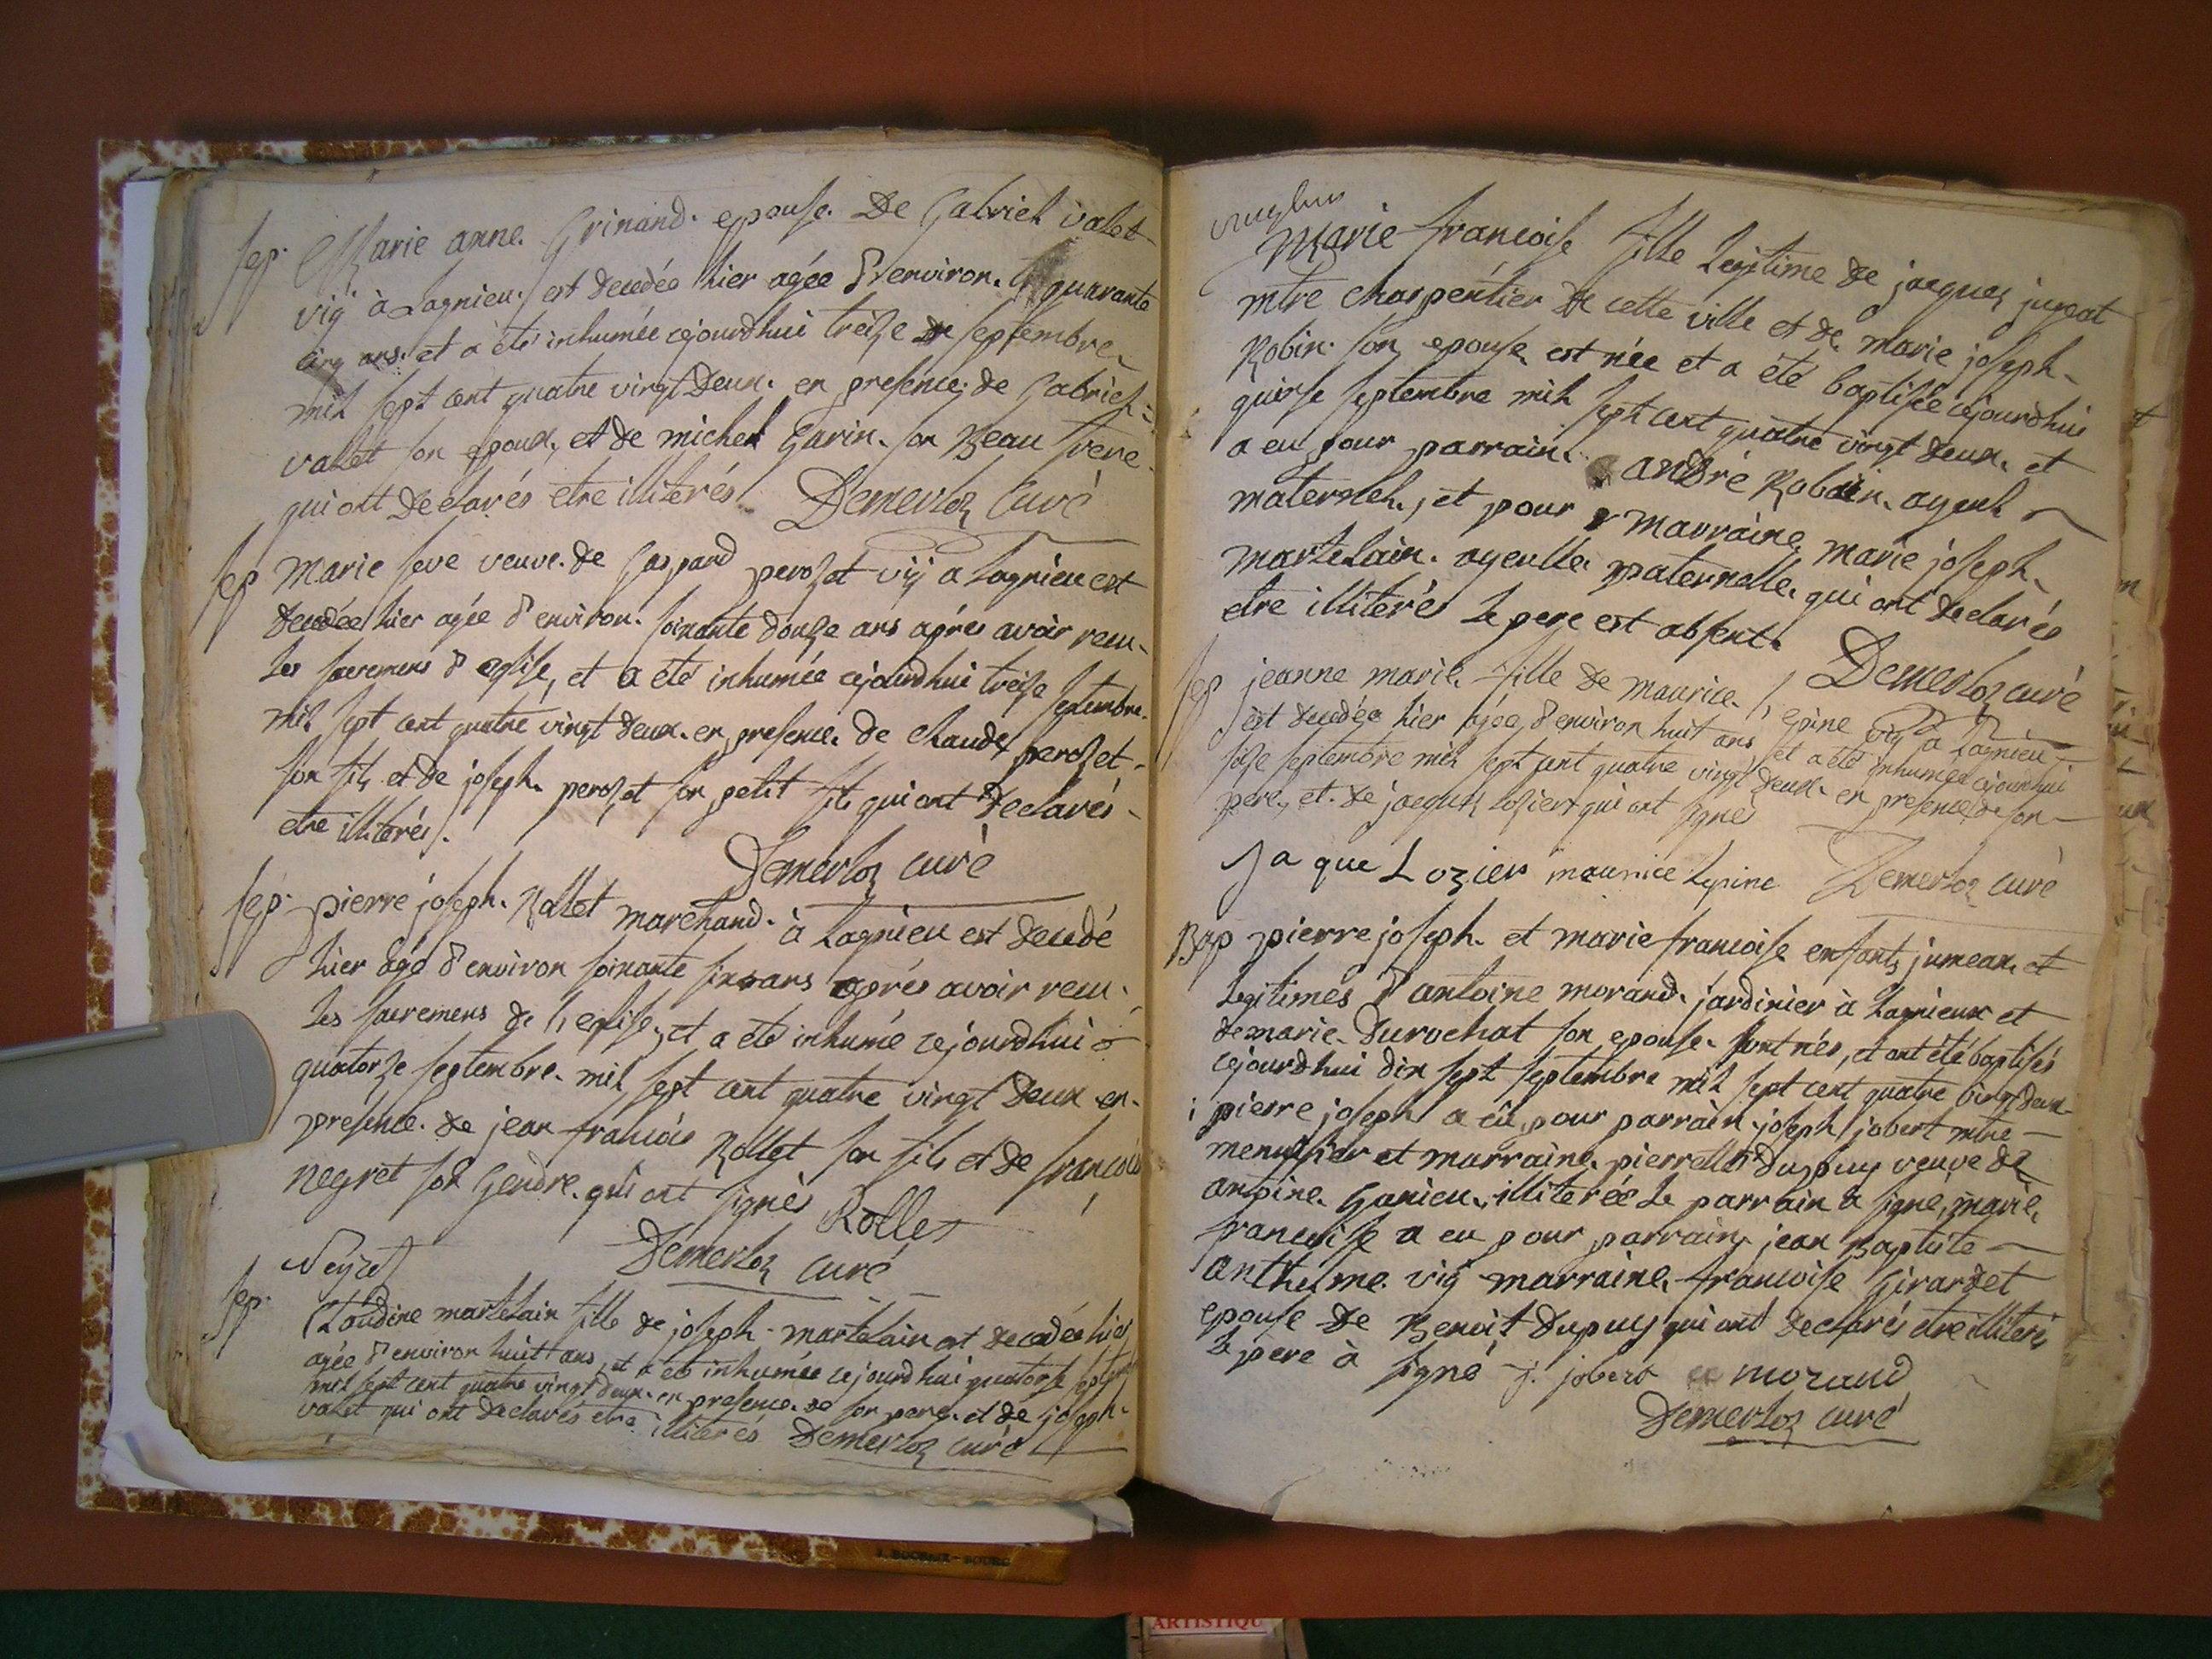 Sep. Marie anne. Grinand. epouse. De Gabriel valet
vig à Lagnieu. est decedée hier agée d'environ. quarante
cinq ans. et a été inhumée cejourdhui treize de septembre
mil sept cent quatre vingt deux. en présence. de Gabriel
valet son epoux, et de michel Garin. son Beau frere
qui ont declarés etre illiterés. Demerloz Curé
Sep Marie seve veuve. de Gaspard perozet vig a Lagnieu est
decedée hier agée d'environ. soixante douze ans aprés avoir recu
les sacremens d'eglise, et a été inhumée cejourdhui treize septembre.
mil sept cent quatre vingt deux. en presence. de claude perozet
son fils et de joseph. perozet son petit fils qui ont declarés
etre illiterés.
Demerloz curé
Sep. pierre joseph. Rollet marchand. à Lagnieu est decedé
hier agé d'environ soixante six ans aprés avoir recu
les sacremens de l'eglise, et a été inhumé cejourdhui
quatorze septembre. mil sept cent quatre vingt deux en
présence. de jean francois Rollet son fils et de francois
negret son Gendre. qui ont signés Rollet
Neyret Demerloz curé
Sep. Claudine martelain fille de joseph martelain est decedée hier
agée d'environ huit ans, et a été inhumée cejourdhui quatorze septembre
mil sept cent quatre vingt deux. en presence. de son pere. et de joseph.
valet qui ont declarés etre illiterés Demerloz curé
Marie francoise fille Legitime de jacques jugeat
mtre charpentier de cette ville et de marie joseph
Robin. son epouse est née et a été baptisée cejourdhui
quinse septembre mil sept cent quatre vingt deux. et
a eu pour parrain. andré Robin. ayeul
maternel., et pour marraine marie joseph.
martelain. ayeulle. paternelle. qui ont declarés
etre illiterés Le pere est absent.
Demerloz curé
Sep jeanne marie. fille de maurice. l'epine vig à Lagnieu
est decedée hier agée d'environ huit ans et a été inhumée cejourdhui
seise septembre mil sept cent quatre vingt deux. en presence de son
pere, et. de jacques Lozier qui ont signé
Jaque Lozier maurice lepine Demerloz curé
Bap pierre joseph. et marie francoise enfants jumeaux et
legitimes d'antoine morand. jardinier à Lagnieux et
de marie. Durochat son epouse. sont nés, et ont été baptisés
cejourdhui dix sept septembre mil sept cent quatre vingt deux
pierre joseph a eü pour parrain. joseph jobert mtre
menusier et marraine. pierrette dupuy veuve de
antoine. Ganieu. illiterée Le parrain a signé, marie.
francoise a eu pour parrain jean Baptiste
anthelme. vig marraine. francoise Girardet
epouse de Benoit Dupuy qui ont declarés etre illiterés
le pere à signé j. jobert a morand
Demerloz curé
ARTISTIQU